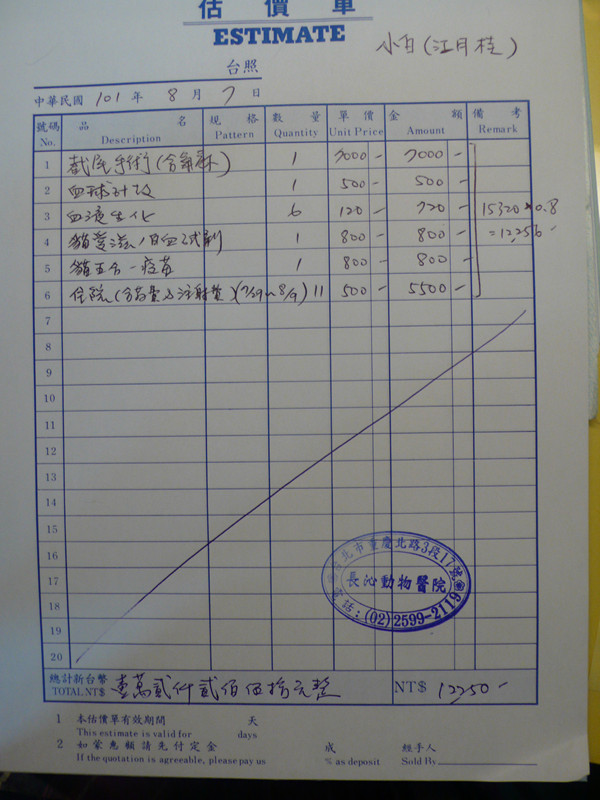 估價單
ESTIMATE
小白(江月桂)
台照
中華民國 101 年 8 月 7 日
號碼 No. 品名 Description 規格 Pattern 數量 Quantity 單價 Unit Price 金額 Amount 備考 Remark
1 截尾手術(含氣麻) 1 7000- 7000-
2 血球計数 1 500- 500-
3 血液生化 6 120- 720- 15320×0.8
4 貓愛滋/白血試劑 1 800- 800- =12256-
5 貓五合一疫苗 1 800- 800-
6 住院(含 費及注射費)(7/29~8/9) 11 500- 5500-
7
8
9
10
11
12
13
14
15
16
17
18
19
20
台北市重慶北路3段17號
長沁動物醫院
電話:(02)2599-2119
總計新台幣 TOTAL NT$ 壹萬貳仟貳佰伍拾元整 NT$ 12250-
1 本估價單有效期間 天
This estimate is valid for days
2 如蒙惠顧請先付定金 成 經手人
If the quotation is agreeable, please pay us % as deposit Sold By